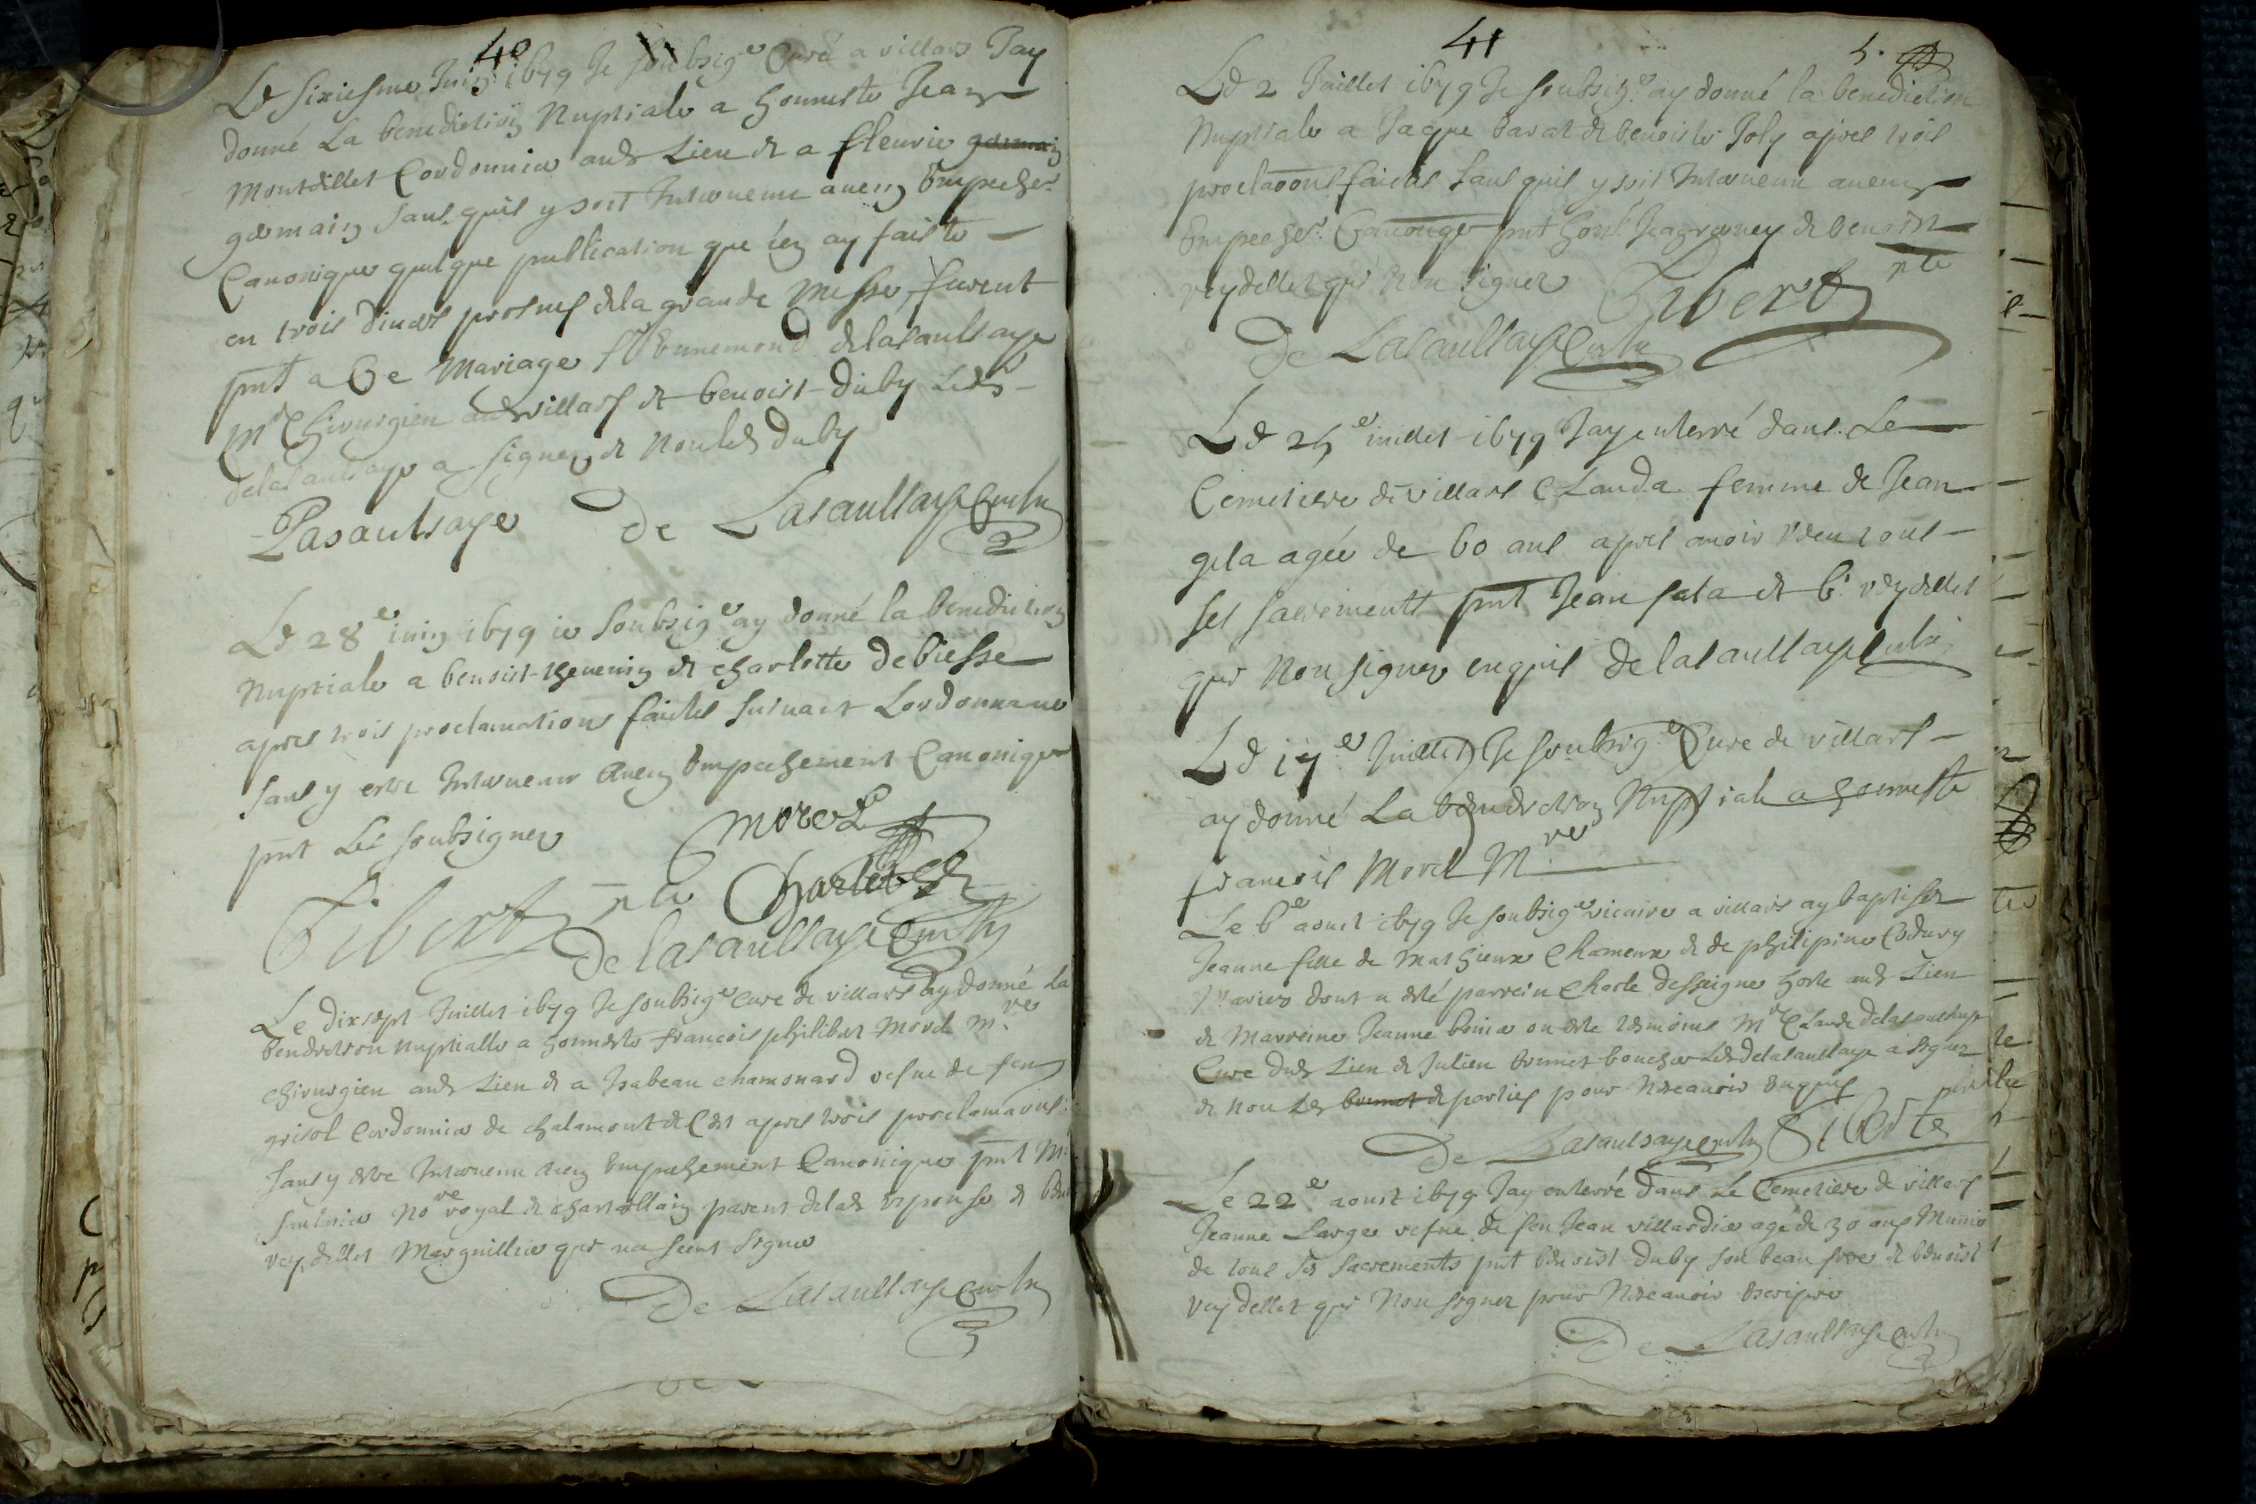 40
Le sixiesme Juin 1679 Je soubsigé Curé a villars Jay
donné La benediction Nuptiale a honneste Jean
Montdillet Cordonnier audt Lieu et a fleurie germain
germain sans quil y soit Intervenu aucun Empecher
Canonique quelque publication que ien ay faicte
en trois divers prosnes dela grande Messe, furent
pnt a Ce Mariage sr Ennemond delasaulsaye
Mre Chirurgien audt villars et benoist duby Ledt
delasaulsaye a signer et Non led duby
Lasaulsaye De Lasaulsaye Curé
Le 28e iuin 1679 ie soubsigé ay donné la benediction
Nuptiale a benoist thevenin et charlotte debiesse
apres trois proclamations faictes suivant Lordonnance
sans y estre Intervenu Aucun Empechement Canonique
pnt Les soubsignes
Morel
Gibert pte Charlet
De lasaulsaye Curé
Le dixsept Juillet 1679 Je soubsigé Curé de villars ay donné La
benediction nuptialle a honneste francois philibert Morel Mre
chirurgien audt Lieu et a Isabeau chamonard vefue de feu
grisol Cordonnier de chalamont et Cest apres trois proclamaons
sans y estre Intervenu aucun empechement Canonique pnt Mr
saulnier Nore royal et chastellain parent delad espouse et ben
veydellet Marguillier qui na sceut signer
De Lasaulsaye Curé
41
5.
Le 2 Juillet 1679 Je soubsigé ay donné la benediction
Nuptiale a Jaque barat et benoiste Joly apres trois
proclaoons faictes sans quil y soit Intervenu aucun
Empecher Canonique pnt honl Jean et benoist
veydellet qui Non signer Gibert pte
De Lasaulsaye Curé
Le 25e iuillet 1679 Jay enterré dans Le
Cemetiere de villars Clauda femme de Jean
gela agée de 60 ans apres avoir receu tous
ses sacrements pnt Jean sala et b. veydellet
qui Non signer enquis delasaulsaye Curé
Le 17e Juillet Je soubsigé Curé de villars
ay donné La benediction Nuptiale a honneste
francois Morel Mre
Le 6e aoust 1679 Je soubsigé vicaire a villars ay baptiser
Jeanne fille de Mathieux Chameux et de philipine Codury
Mariez dont a esté parrein Charle desseigne hoste audt Lieu
et Marreine Jeanne on este tesmoins Mre Claude delasaulsaye
Curé dudt Lieu et Julien brunet boucher Ledt delasaulsaye a signer
et non Led brunet et parties pour Ne scavoir enquis
De Lasaulsaye Curé Giberte
Le 22e aoust 1679 Jay enterré dans Le Cemetiere de villars
Jeanne Large vefue de feu Jean villardier age de 30 ans Munie
de tous ses sacrements pnt benoist duby son beau frere et benoist
veydellet qui Non signer pour Ne scavoir escripre
De Lasaulsaye Curé